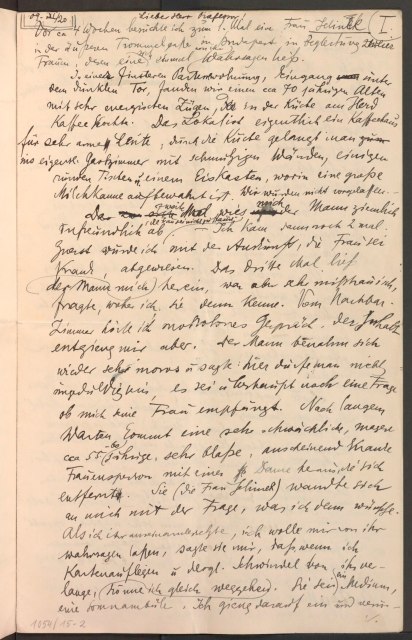 Lieber Herr Professor! I.
Vor ca 4 Wochen besuchte ich zum 1. Mal eine Frau Jelinek
in der äusseren Trommelgasse in Budapest in Begleitung zweier
Frauen, deren eine sich einmal wahrsagen ließ.
In einer finsteren Parterrewohnung, Eingang unter
dem dunklen Tor, fanden wir einen ca 70 jährigen Alten
mit sehr energischen Zügen, der in der Küche am Herd
Kaffee kochte. Das Lokal ist eigentlich ein Kaffeehaus
für sehr arme Leute; durch die Küche gelangt man
ins eigentl. Gastzimmer mit schmutzigen Wänden, einigen
runden Tischen u einem Eiskasten, worin eine große
Milchkanne aufbewahrt ist. Wir wurden nicht vorgelassen.
wies der Mann ziemlich
unfreundlich ab, Ich kam dann noch 2 mal.
Zuerst wurde ich mit der Auskunft, die Frau sei
krank, abgewiesen. Das dritte Mal ließ
der Mann mich herein, war aber sehr mißtrauisch,
fragte, woher ich sie denn kenne. Vom Nachbar-
zimmer hörte ich monotones Gespräch, der Inhalt
entgieng mir aber. Der Mann benahm sich
wieder sehr moros u sagte: hier dürfe man nicht
ungeduldig sein, es sei überhaupt noch eine Frage
ob mich seine Frau empfängt. Nach langem
Warten kommt eine sehr schwächliche, magere
ca 55 jährige, sehr blaße, anscheinend kranke
Frauensperson mit einer Dame heraus, die sich
entfernte. Sie (die Frau Jelinek) wandte sich
an mich mit der Frage, was ich denn wünsche.
Als ich ihr auseinandersetzte, ich wolle mir von ihr
wahrsagen lassen, sagte sie mir, daß wenn ich
Kartenauflegen u dergl. Schwindel von ihr ver-
lange, könne ich gleich weggehen. Sie sei ein Medium,
eine somnambüle. Ich gieng darauf ein und
1054/15-2